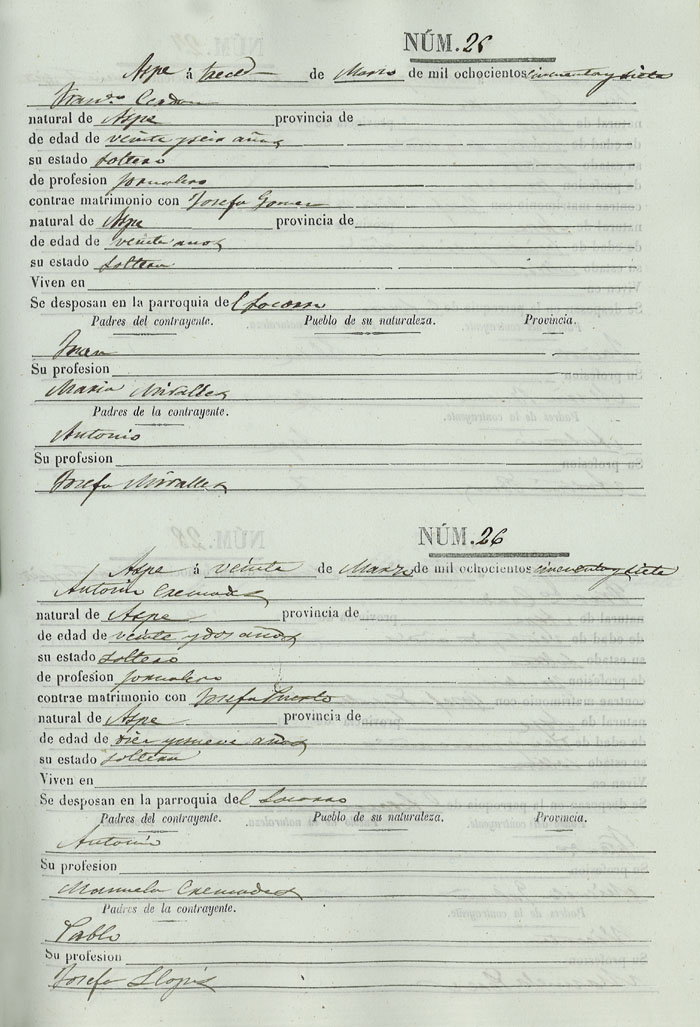 NÚM. 26
Aspe á trece de Marzo de mil ochocientos cincuenta y siete
Fran.co Cerdan
natural de Aspe provincia de
de edad de veinte y seis años
su estado soltero
de profesion Jornalero
contrae matrimonio con Josefa Gomez
natural de Aspe provincia de
de edad de veinte anos
su estado soltera
Viven en
Se desposan en la parroquia del Socorro
Padres del contrayente. Pueblo de su naturaleza. Provincia.
Juan
Su profesion
Maria Miralles
Padres de la contrayente.
Antonio
Su profesion
Josefa Miralles
NÚM. 26
Aspe á veinte de Marzo de mil ochocientos cincuenta y siete
Antonio Cremades
natural de Aspe provincia de
de edad de veinte y dos años
su estado soltero
de profesion Jornalero
contrae matrimonio con Josefa Puerto
natural de Aspe provincia de
de edad de diez y nueve años
su estado soltera
Viven en
Se desposan en la parroquia del Socorro
Padres del contrayente. Pueblo de su naturaleza. Provincia.
Antonio
Su profesion
Manuela Cremades
Padres de la contrayente.
Pablo
Su profesion
Josefa Llopis